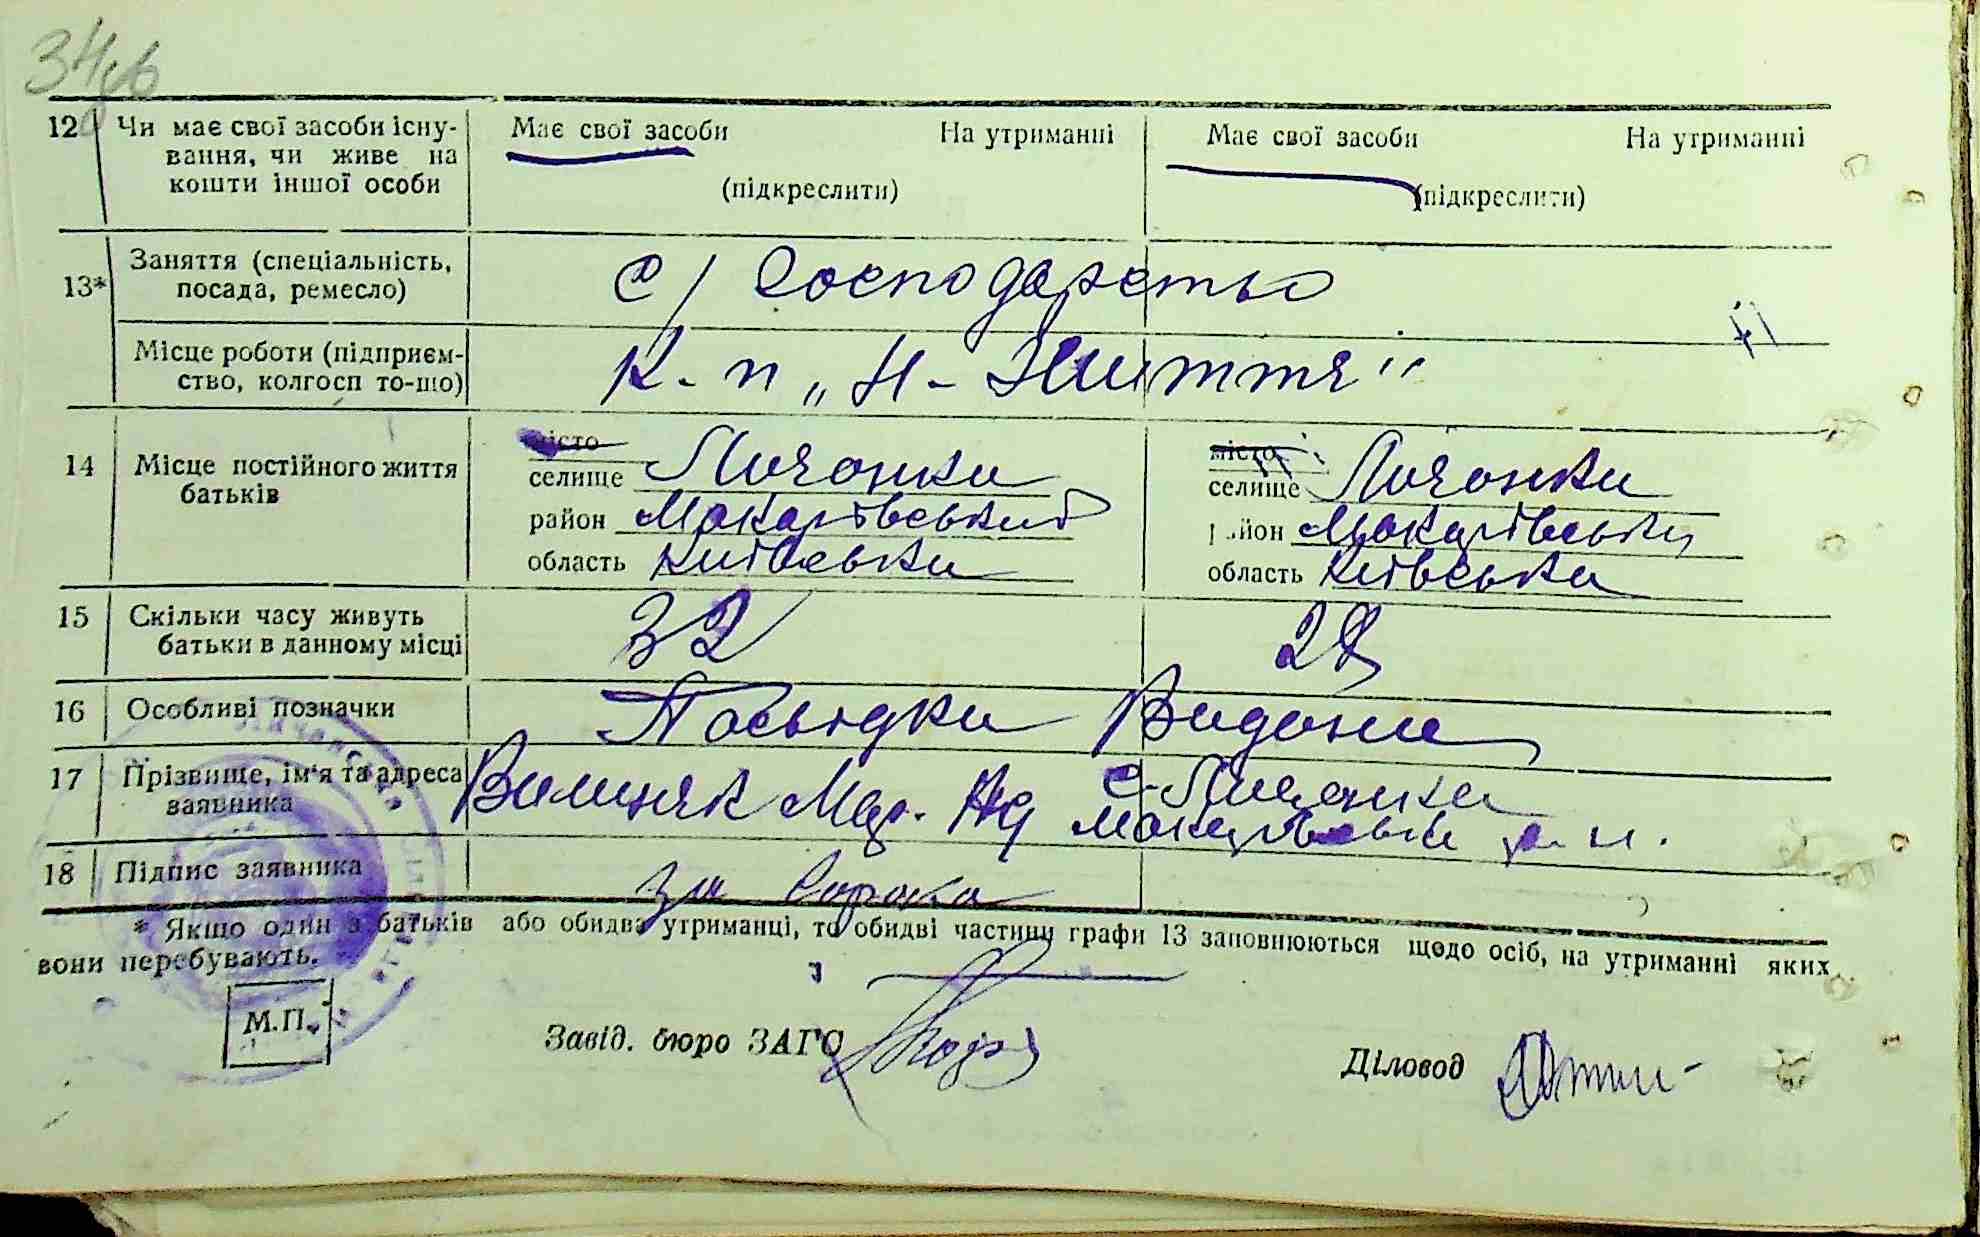 34
12 Чи має свої засоби існу- Має свої засоби На утриманні Має свої засоби На утриманні
вання, чи живе на
кошти іншої особи (підкреслити) (підкреслити)
13* Заняття (спеціальність, с/Господарство
посада, ремесло)
Місце роботи (підприєм- К-п „Н-Життя"
ство, колгосп то-що)
14 Місце постійного життя місто місто
батьків селище Личанка селище Личанка
район Макарівський район Макарівський
область Київська область Київська
15 Скільки часу живуть 32 28
батьки в данному місці
16 Особливі позначки Посвідки Видані
17 Прізвище, ім'я та адреса с-Личанка
заявника Мар.
18 Підпис заявника за Сорока
* Якщо один з батьків або обидва утриманці, то обидві частини графи 13 заповнюються щодо осіб, на утриманні яких
вони перебувають.
М.П.
Завід. бюро ЗАГС
Діловод